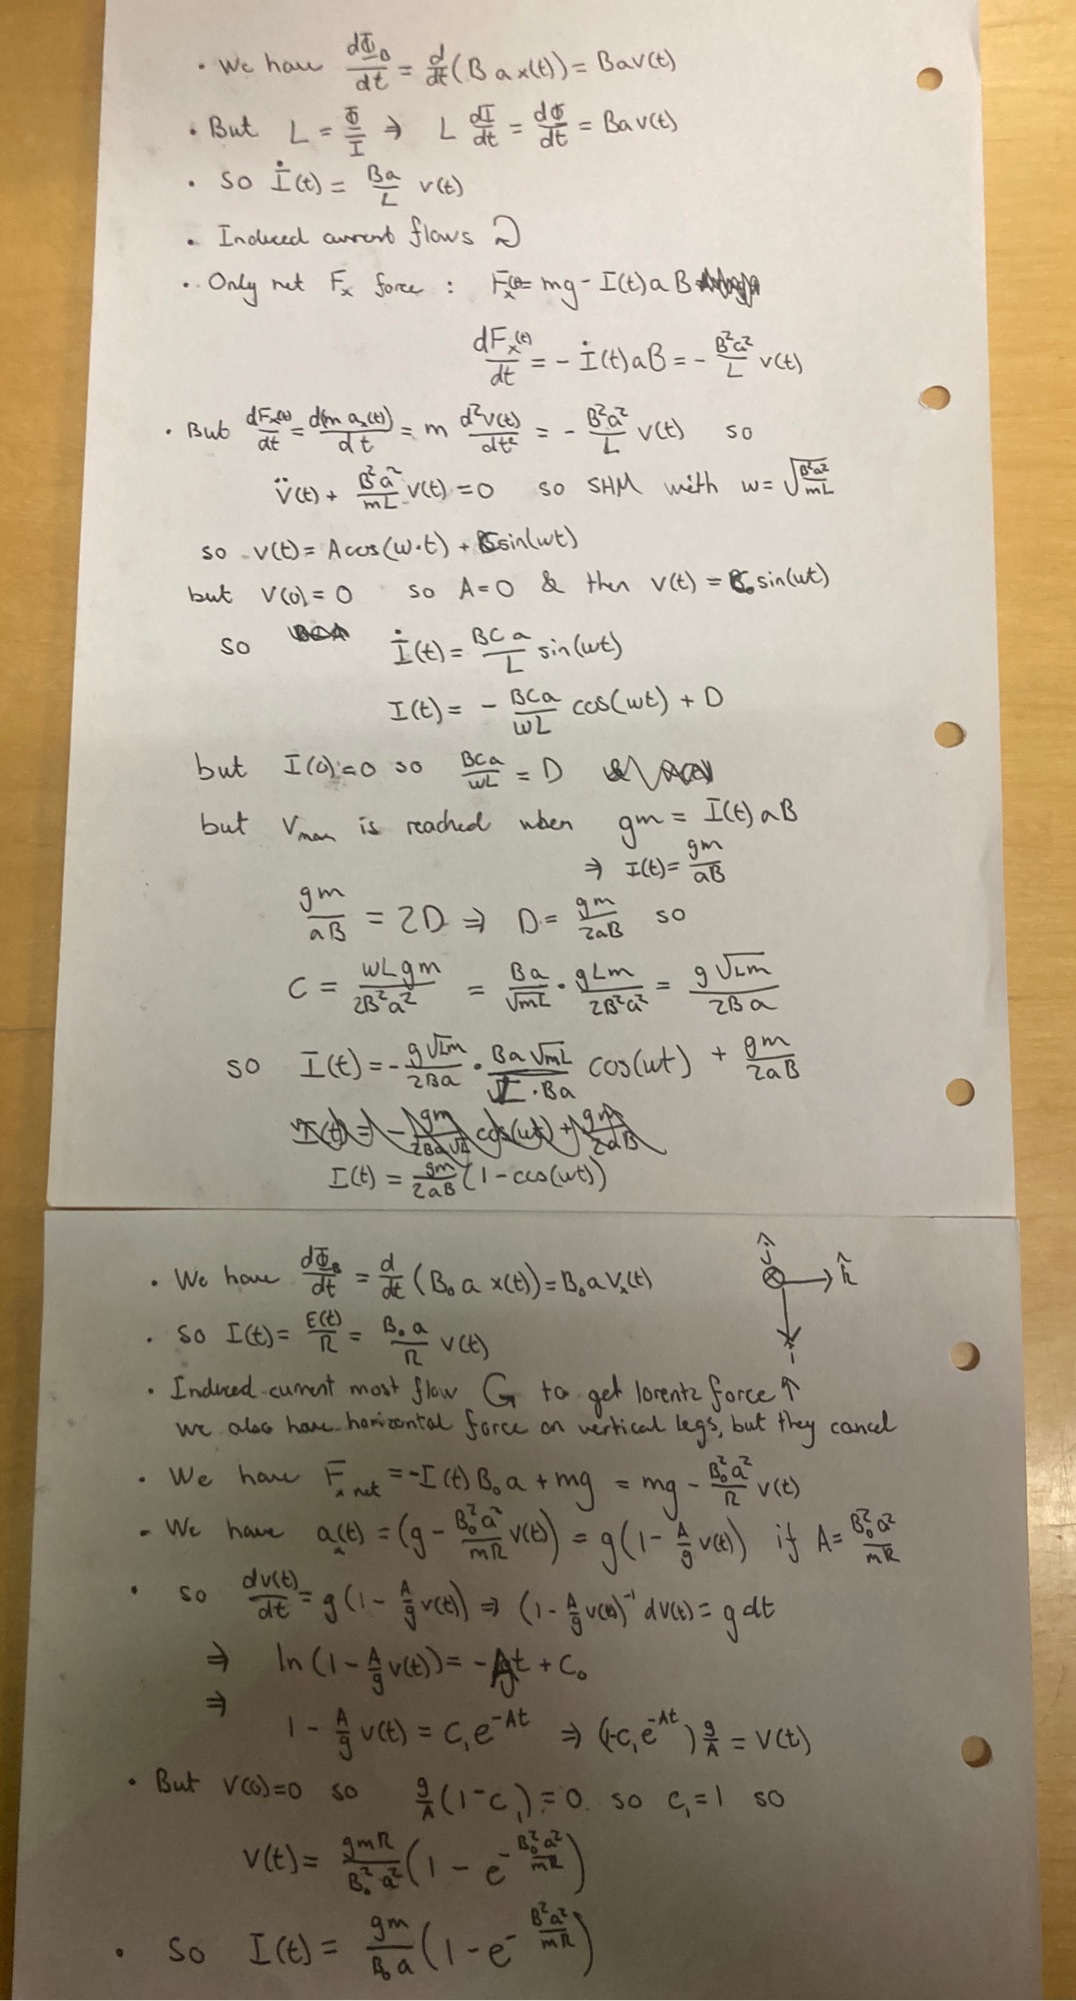 • We have dΦ_B/dt = d/dt (B a x(t)) = Bav(t)
• But L = Φ/I ⇒ L dI/dt = dΦ/dt = Bav(t)
• so İ(t) = Ba/L v(t)
• Induced current flows ↻
• Only net F_x force : F_x(t) = mg - I(t)aB
dF_x(t)/dt = - İ(t)aB = - B²a²/L v(t)
• But dF_x(t)/dt = d(m a_x(t))/dt = m d²v(t)/dt² = - B²a²/L v(t) so
v̈(t) + B²a²/mL v(t) = 0 so SHM with w = √(B²a²/mL)
so v(t) = A cos(w·t) + C sin(wt)
but v(0) = 0 so A = 0 & then v(t) = C sin(wt)
so İ(t) = BCa/L sin(wt)
I(t) = - BCa/wL cos(wt) + D
but I(0) = 0 so BCa/wL = D
but V_max is reached when gm = I(t) aB
⇒ I(t) = gm/aB
gm/aB = 2D ⇒ D = gm/2aB so
C = wLgm/2B²a² = Ba/√mL · gLm/2B²a² = g√Lm/2Ba
so I(t) = - g√Lm/2Ba · Ba√mL/L·Ba cos(wt) + gm/2aB
I(t) = gm/2aB (1 - cos(wt))
• We have dΦ_B/dt = d/dt (B₀ a x(t)) = B₀ a V_x(t)
ĵ ⊗ → k̂
• so I(t) = E(t)/R = B₀a/R v(t)
î
• Induced current most flow ↺ to get lorentz force ↑
we also have horizontal force on vertical legs, but they cancel
• We have F_x net = -I(t) B₀ a + mg = mg - B₀²a²/R v(t)
• We have a_x(t) = (g - B₀²a²/mR v(t)) = g(1 - A/g v(t)) if A = B₀²a²/mR
• so dv(t)/dt = g(1 - A/g v(t)) ⇒ (1 - A/g v(t))⁻¹ dv(t) = g dt
⇒ ln(1 - A/g v(t)) = -At + C₀
⇒
1 - A/g v(t) = C₁e^-At ⇒ (1-C₁e^-At) g/A = v(t)
• But v(0)=0 so g/A (1-C₁) = 0 so C₁ = 1 so
v(t) = gmR/B₀²a² (1 - e^- B₀²a²/mR)
• so I(t) = gm/B₀a (1 - e^- B²a²/mR)